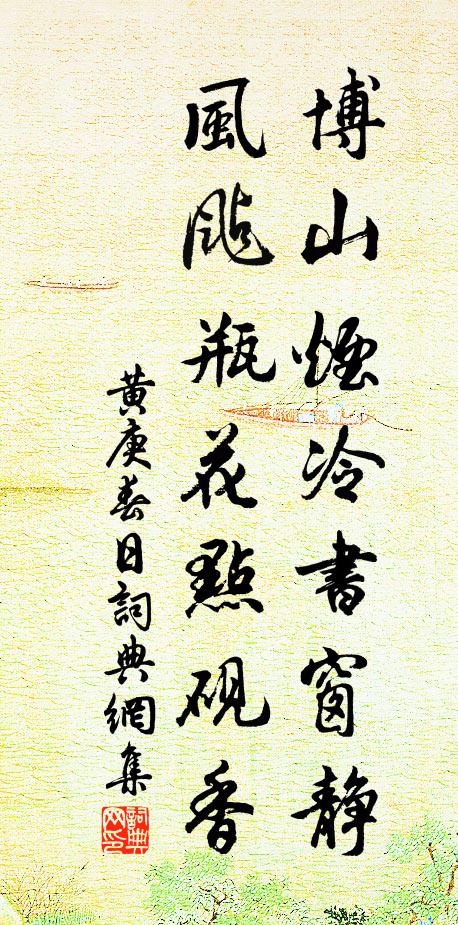 博山煙冷書窗静
風颭瓶花點硯香
黄庚春日詞典網集
詞典網印